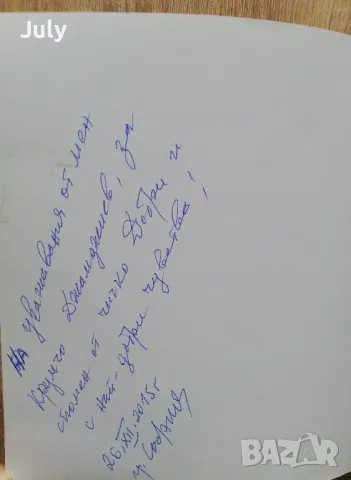 July
На уважавания от мен
Крумчо Джамджиев, за
спомен от чичко Добри и
с най-добри чувства!
26.XII.2015г
гр. София
bazar.bg